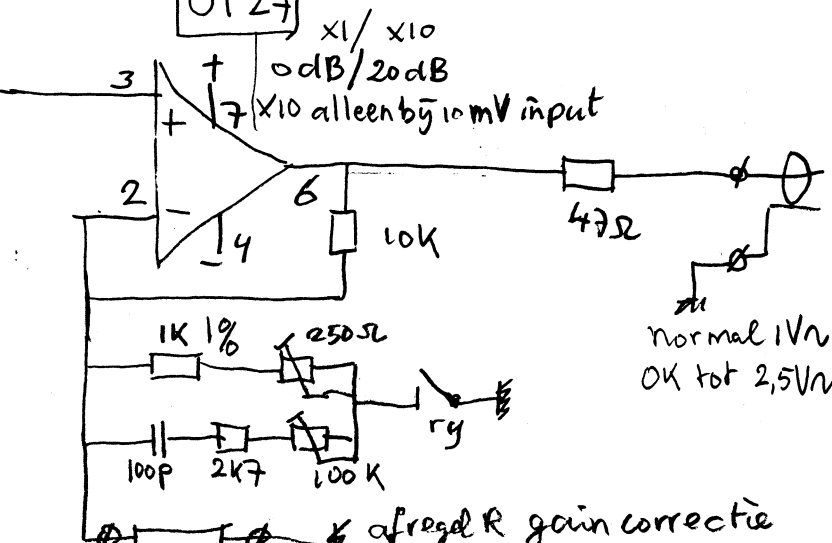 OP27
x1/ x10
0dB/20dB
x10 alleen bÿ 10mV input
3
+
+
7
2
-
6
4
-
10K
47Ω
1K 1%
250Ω
normal 1V~
OK tot 2,5V~
ry
100p
2K7
100K
afregel R gain correctie